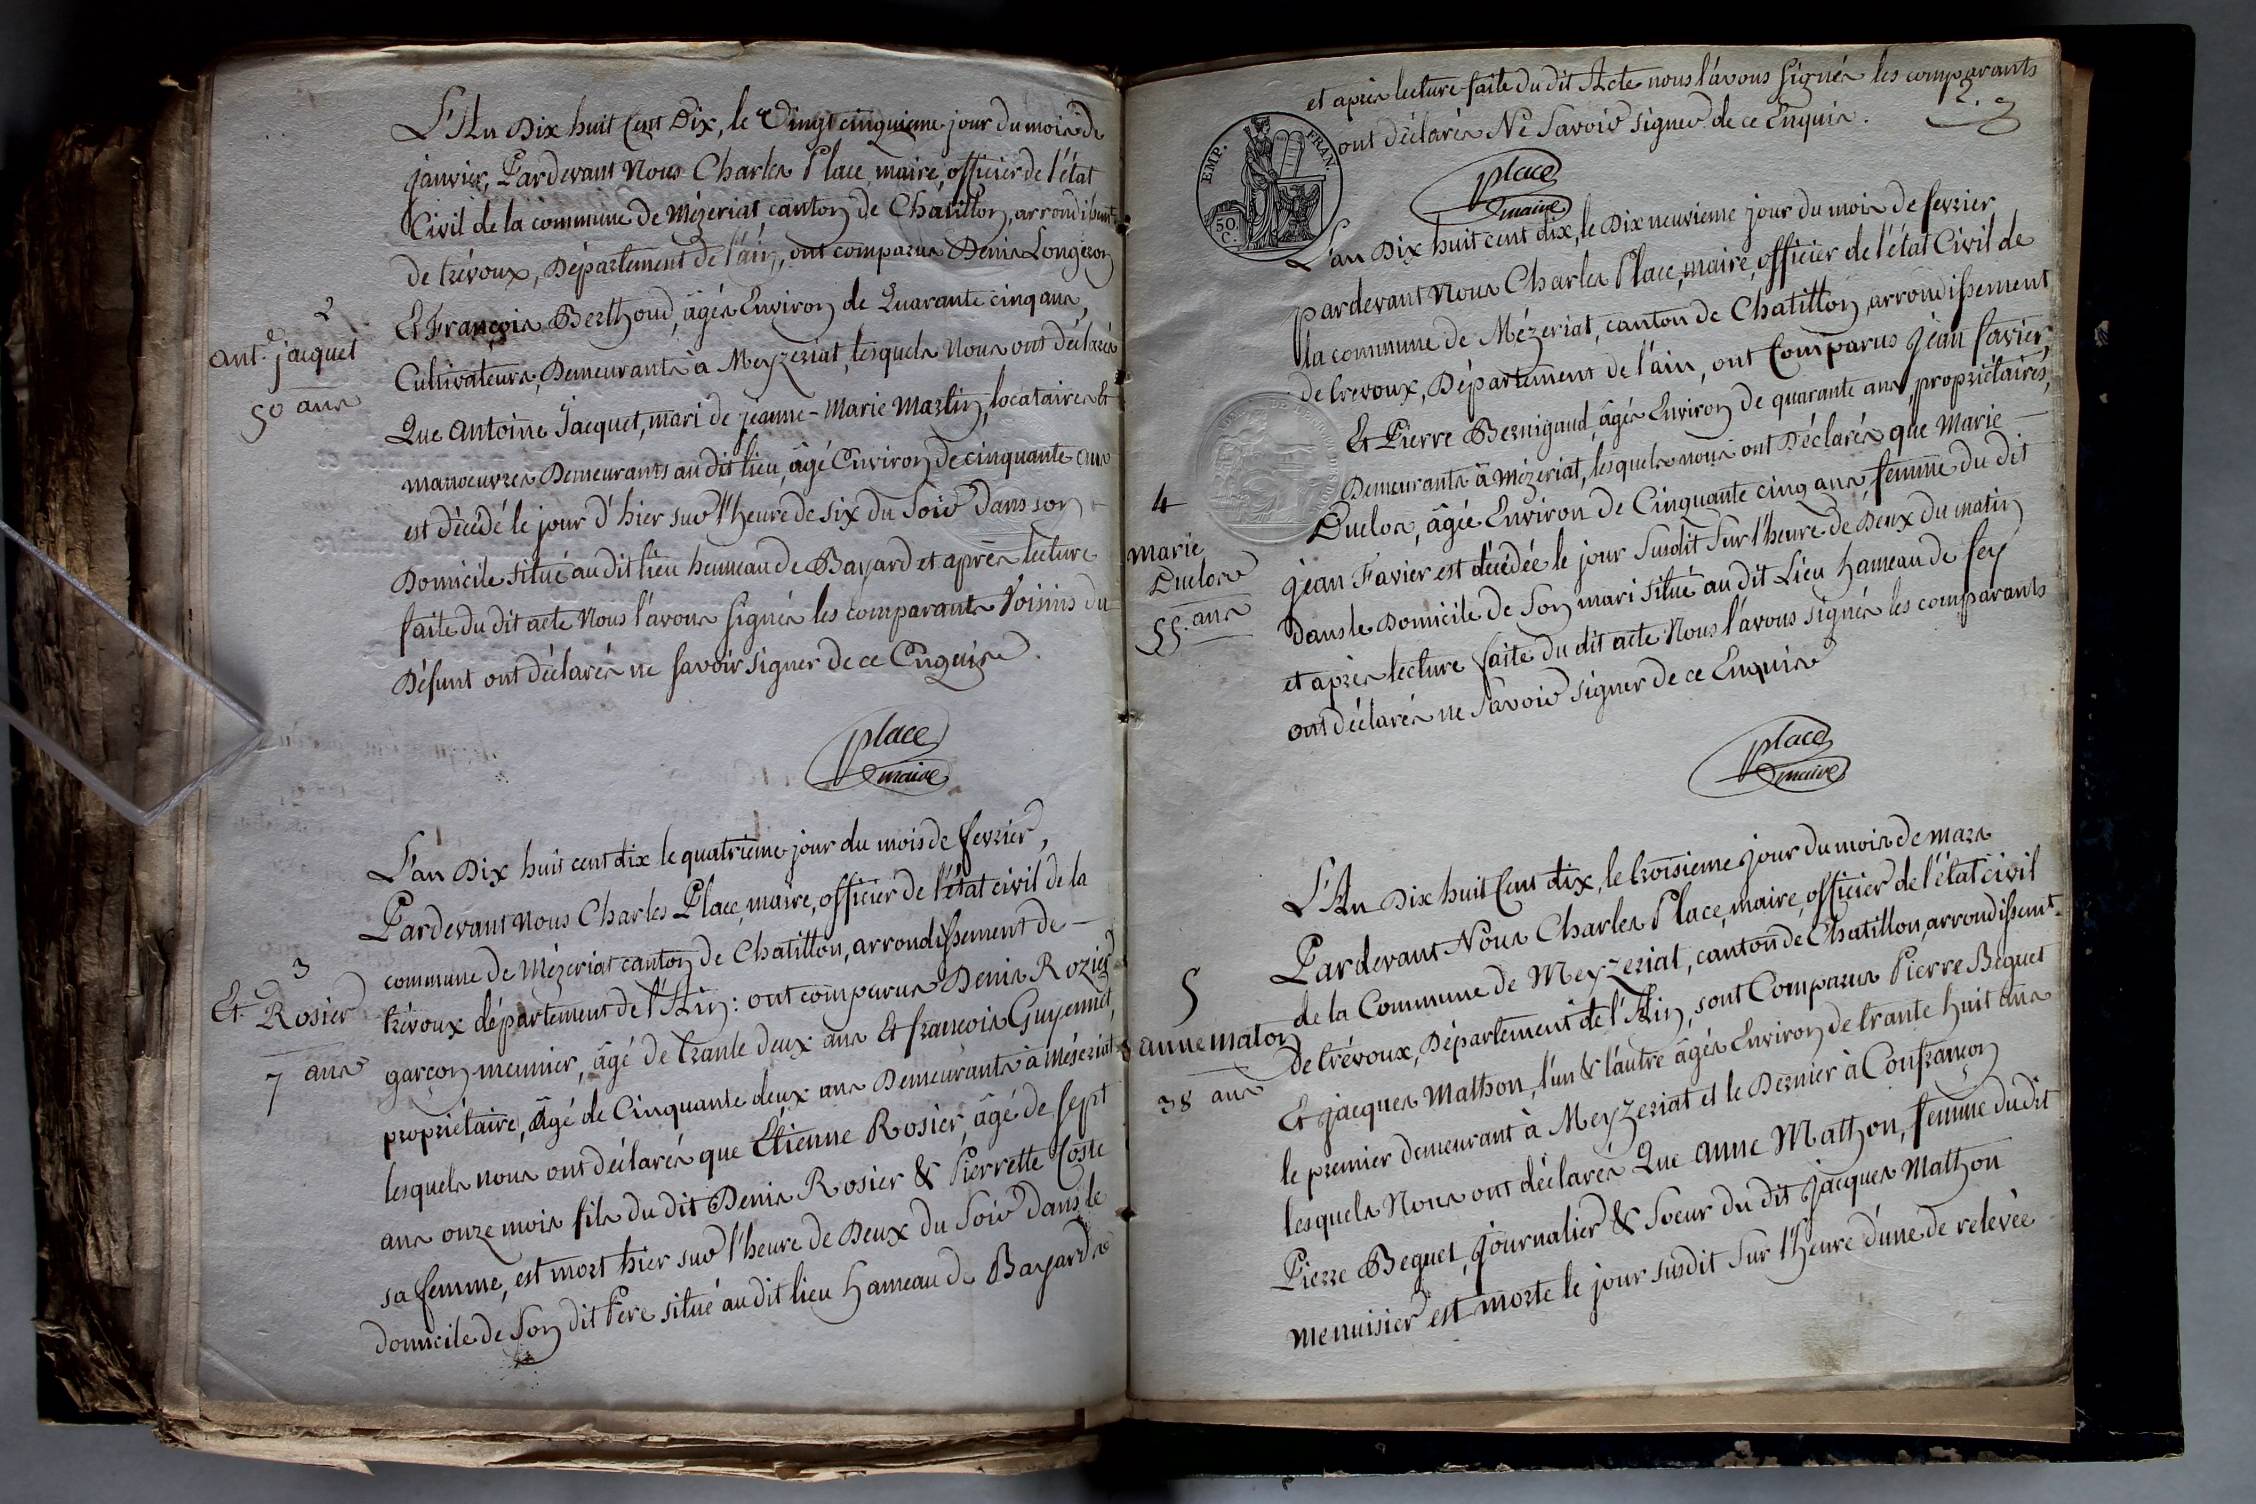 L'An Dix huit Cent Dix, le Vingt cinquieme jour du mois de
janvier, Pardevant Nous Charles Place, maire, officier de l'état
Civil de la commune de Mézeriat canton de Châtillon, arrondissent
de trévoux, Département de l'ain, ont comparus Denis Longeron
Et François Berthoud, âgés Environ de Quarante cinq ans,
2
ant.e jacquet
50 ans
Cultivateurs, Demeurants à Meyzeriat, lesquels Nous ont déclarés
Que Antoine Jacquet, mari de jeanne-Marie Martin, locataires et
manoeuvres Demeurants au dit lieu, âgé Environ de cinquante ans
est décédé le jour d'hier sur l'heure de six du Soir Dans son
Domicile situé au dit lieu hameau de Bayard et après lecture
faite du dit acte Nous l'avons Signés les comparants Voisins du
Défunt ont déclarés ne savoir signer de ce Enquis.
place
maire
L'an Dix huit cent dix le quatrieme jour du mois de fevrier,
Pardevant nous Charles Place, maire, officier de l'état civil de la
commune de Mézeriat canton de Chatillon, arrondissement de
3
Et. Rosier
7 ans
trévoux département de l'Ain : ont comparus Denis Rozier
garçon meunier, âgé de trante deux ans Et francois Guyennet,
propriétaire, âgé de Cinquante deux ans Demeurants à Mézeriat
lesquels nous ont déclarés que Etienne Rosier, âgé de sept
ans onze mois fils du dit Denis Rosier & Pierrette Coste
sa femme, est mort hier sur l'heure de Deux du Soir Dans le
domicile de Son dit Père situé au dit lieu hameau de Bayard
et après lecture faite du dit Acte nous l'avons Signés les comparants
2.e
ont déclarés Ne Savoir signer de ce Enquis.
EMP. FRAN.
50 C.
place
maire
L'an Dix huit cent dix, le Dix neuvieme jour du mois de fevrier
Pardevant Nous Charles Place, maire, officier de l'état Civil de
la commune de Mézeriat, canton de Chatillon, arrondissement
de trevoux, Département de l'ain, ont Comparus Jean favier,
Et Pierre Bernigaud, âgés Environ de quarante ans, propriétaires,
Demeurants à Mézeriat, lesquels nous ont Déclarés que Marie
4
marie
Duclos
55. ans
Duclos, âgée Environ de Cinquante cinq ans, femme du dit
Jean Favier est décédée le jour Susdit Sur l'heure de Deux du matin
Dans le Domicile de Son mari situé au dit Lieu hameau de fey
et après lecture faite du dit acte Nous l'avous signés les comparants
ont déclarés ne Savoir signer de ce Enquis
place
maire
L'An Dix huit Cent dix, le troisieme jour du mois de mars
Pardevant Nous Charles Place, maire, officier de l'état civil
de la Commune de Meyzeriat, canton de Chatillon, arrondissent.
5
anne maton
38 ans
de trévoux, Département de l'Ain, sont Comparus Pierre Beguet
Et Jacques Mathon, l'un & l'autre âgés Environ de trante huit ans
le premier demeurant à Meyzeriat et le Dernier à Confrançon
lesquels Nous ont déclarés Que anne Mathon, femme du dit
Pierre Beguet, Journalier & Soeur du dit Jacques Mathon
menuisier est morte le jour susdit Sur l'heure d'une de relevée